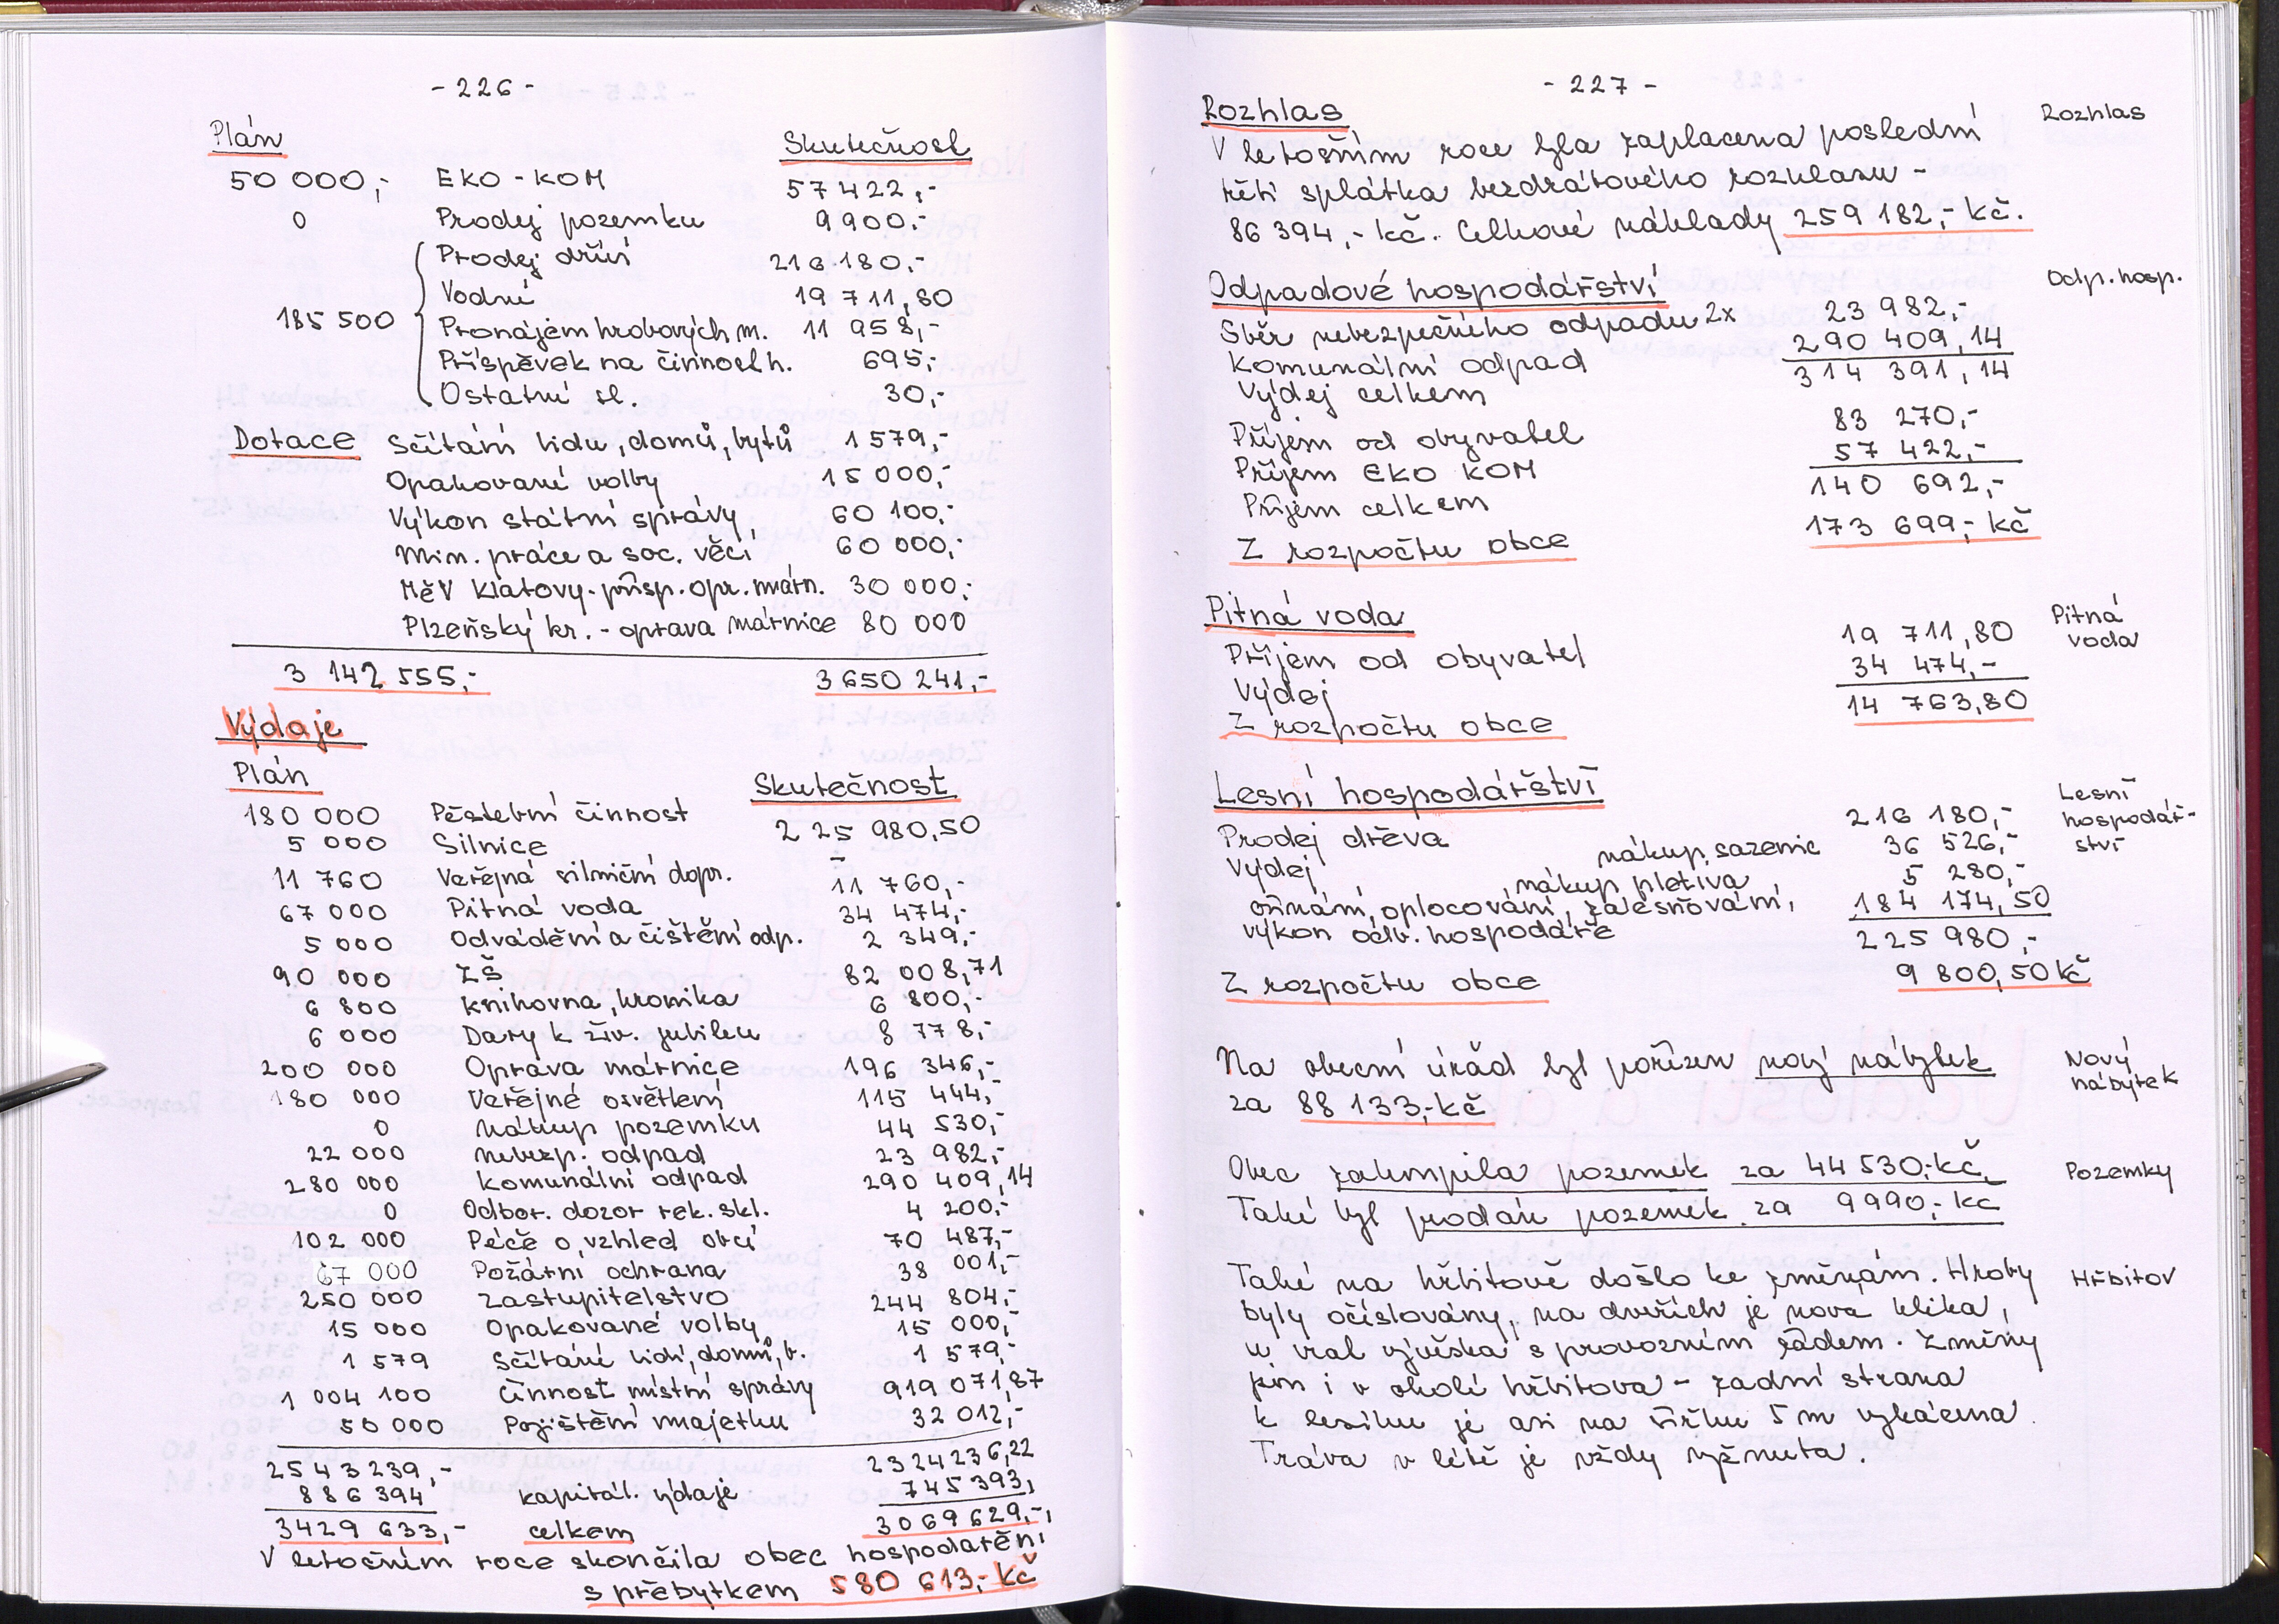 - 226 -
Plán Skutečnost
50 000,- EKO - KOM 57 422,-
0 Prodej pozemku 9 900,-
Prodej dříví 216 180,-
Vodné 19 711,80
185 500 Pronájem hrobových m. 11 958,-
Příspěvek na činnost h. 695,-
Ostatní sl. 30,-
Dotace Sčítání lidu, domů, bytů 1 579,-
Opakované volby 15 000,-
Výkon státní správy 60 100,-
Min. práce a soc. věcí 60 000,-
MěÚ Klatovy - přísp. opr. márn. 30 000,-
Plzeňský kr. - oprava márnice 80 000
3 142 555,- 3 650 241,-
Výdaje
Plán Skutečnost
180 000 Pěstební činnost 225 980,50
5 000 Silnice -
11 760 Veřejná silniční dopr. 11 760,-
67 000 Pitná voda 34 474,-
5 000 Odvádění a čištění odp. 2 349,-
90 000 ZŠ 82 008,71
6 800 Knihovna, kronika 6 800,-
6 000 Dary k živ. jubileu 8 778,-
200 000 Oprava márnice 196 346,-
180 000 Veřejné osvětlení 115 444,-
0 Nákup pozemku 44 530,-
22 000 nebezp. odpad 23 982,-
280 000 Komunální odpad 290 409,14
0 Odbor. dozor rek. skl. 4 200,-
102 000 Péče o vzhled obcí 70 487,-
67 000 Požární ochrana 38 001,-
250 000 Zastupitelstvo 244 804,-
15 000 Opakované volby 15 000,-
1 579 Sčítání lidí, domů, b. 1 579,-
1 004 100 Činnost místní správy 919 071,87
50 000 Pojištění majetku 32 012,-
2543 239,- 2324 236,22
886 394 Kapitál. výdaje 745 393,
3429 633,- celkem 3069 629,-
V letošním roce skončila obec hospodaření
s přebytkem 580 613,- Kč
- 227 -
Rozhlas Rozhlas
V letošním roce byla zaplacena poslední
třetí splátka bezdrátového rozhlasu -
86 394,- kč. Celkové náklady 259 182,- kč.
Odpadové hospodářství Odp. hosp.
Sběr nebezpečného odpadu 2x 23 982,-
Komunální odpad 290 409,14
Výdej celkem 314 391,14
Příjem od obyvatel 83 270,-
Příjem EKO KOM 57 422,-
Příjem celkem 140 692,-
Z rozpočtu obce 173 699,- kč
Pitná voda Pitná voda
Příjem od obyvatel 19 711,80
Výdej 34 474,-
Z rozpočtu obce 14 763,80
Lesní hospodářství Lesní hospodář-ství
Prodej dřeva 216 180,-
Výdej nákup sazenic 36 526,-
nákup pletiva 5 280,-
ožínání, oplocování, zalesňování,
výkon odb. hospodáře 184 174,50
225 980,-
Z rozpočtu obce 9 800,50 kč
Na obecní úřad byl pořízen nový nábytek Nový nábytek
za 88 133,- kč
Obec zakoupila pozemek za 44 530,- kč. Pozemky
Také byl prodán pozemek za 9990,- kč
Také na hřbitově došlo ke změnám. Hroby Hřbitov
byly očíslovány, na dveřích je nová klika,
u vrat vývěska s provozním řádem. Změny
jsou i v okolí hřbitova - zadní strana
k lesíku je asi na šířku 5 m vykácena.
Tráva v létě je vždy vyžnuta.